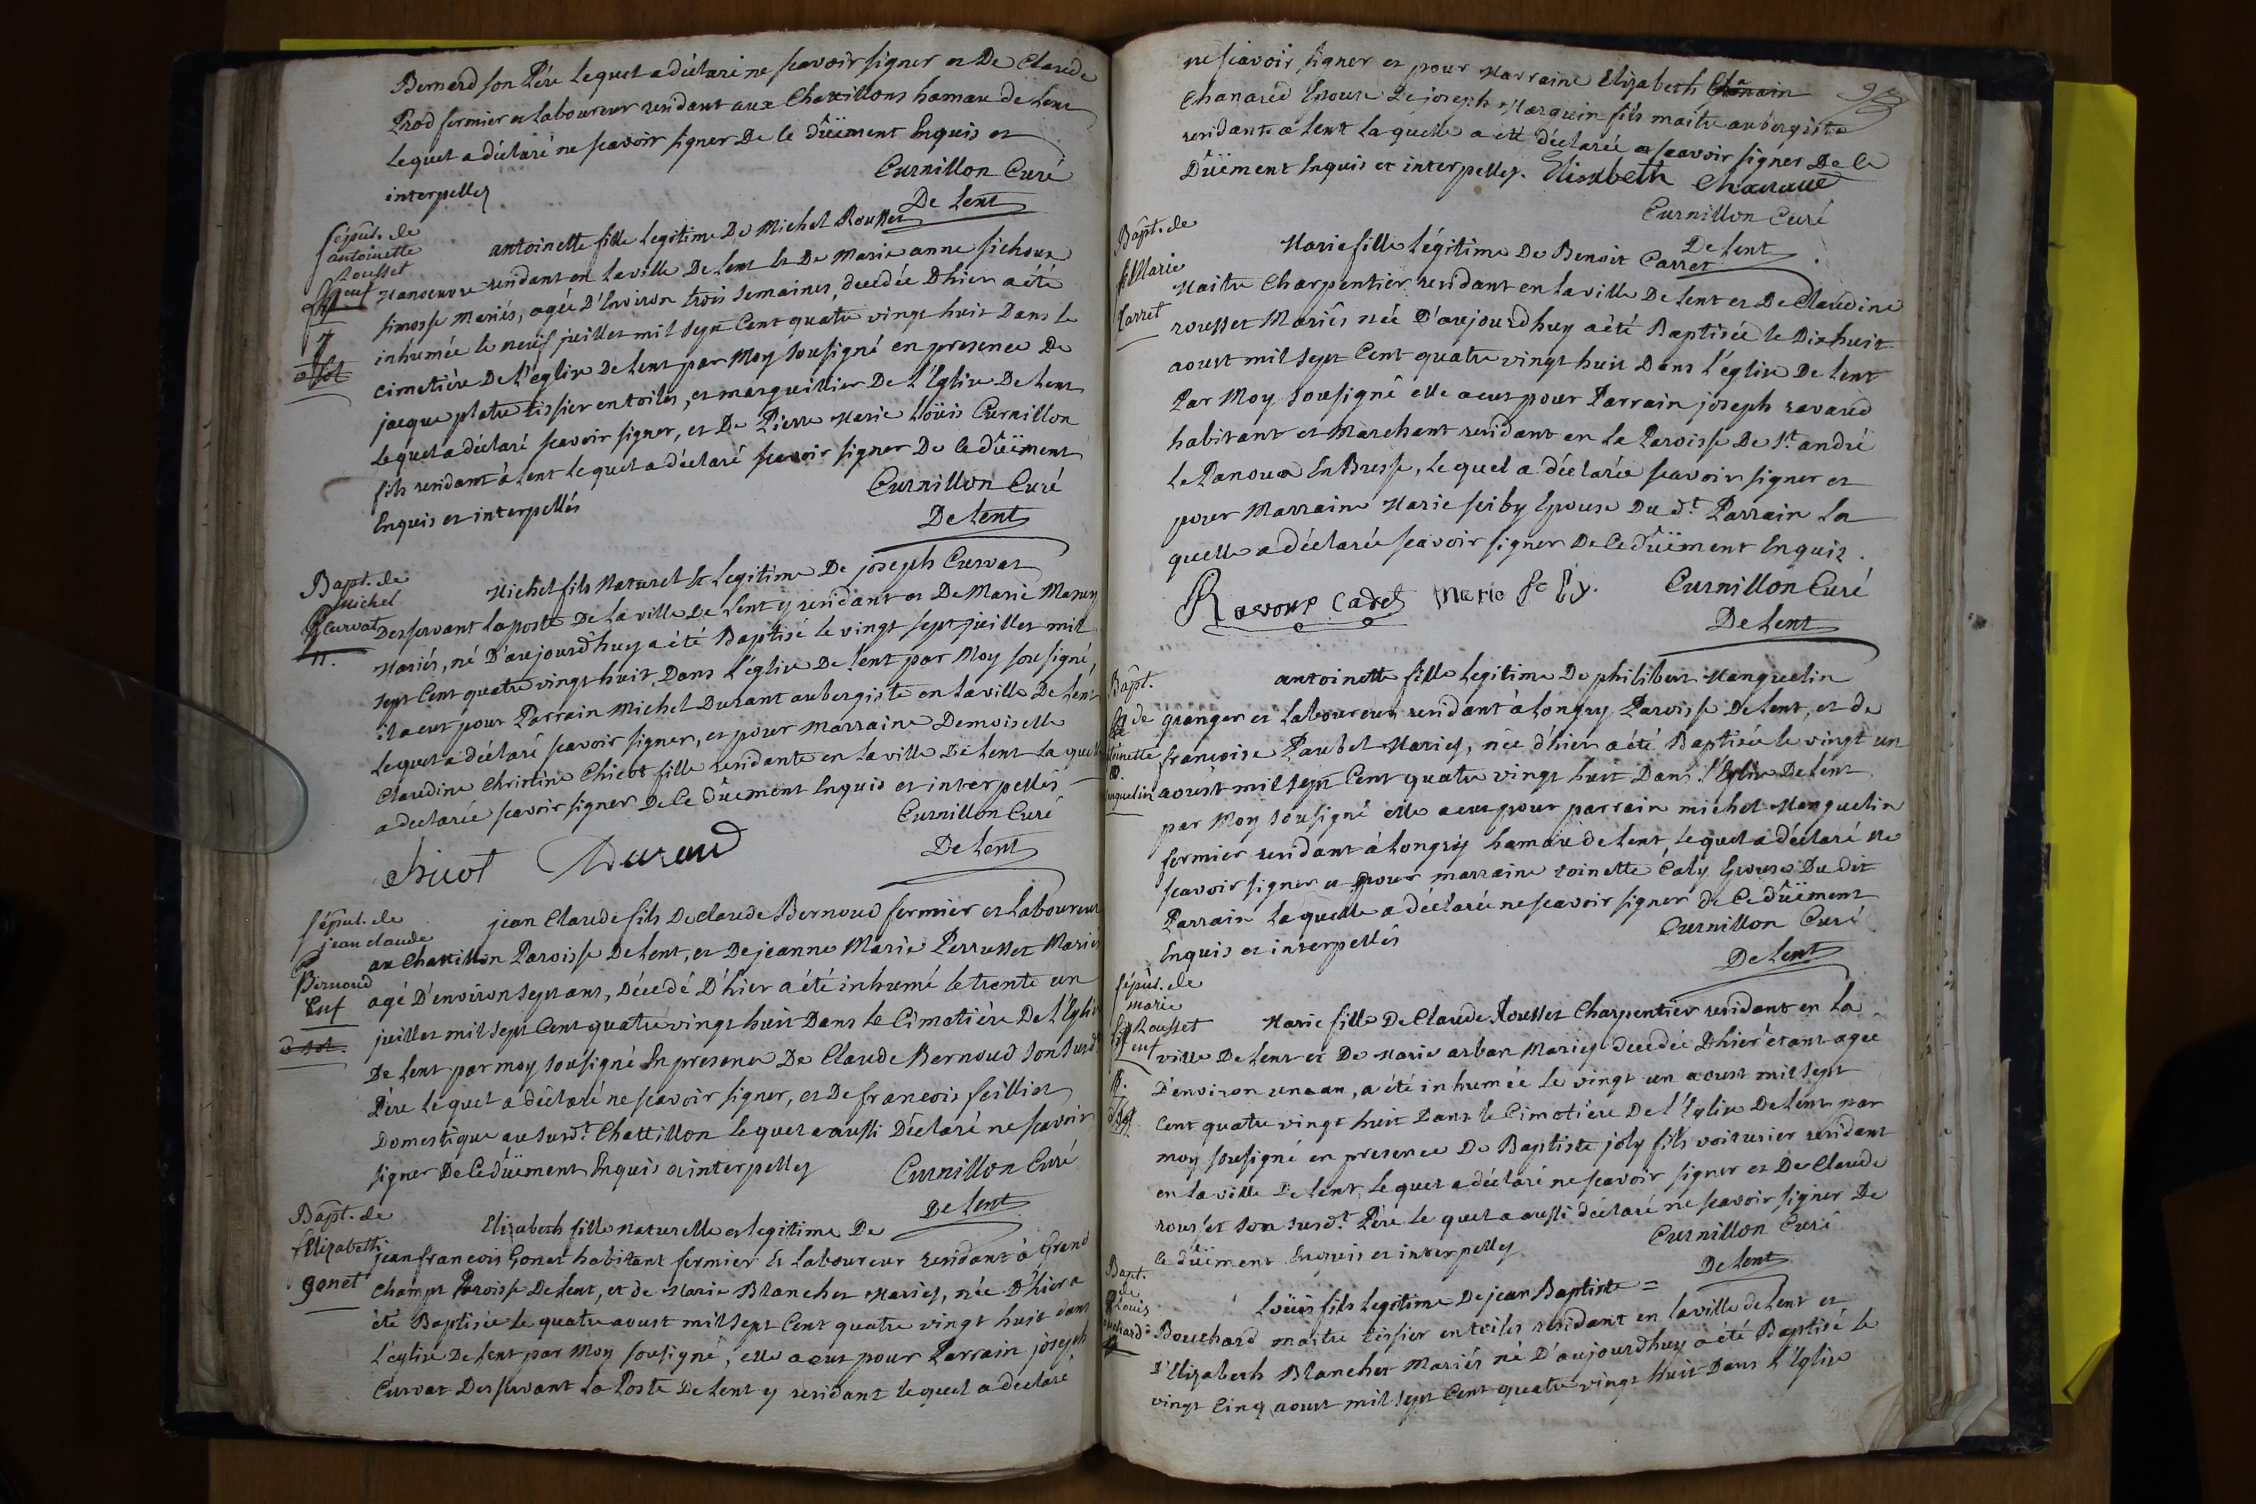 Bernard son Père lequel a déclaré ne scavoir signer et De Claude
Prod fermier et laboureur residant aux Chatillons hamau de Lent
lequel a déclaré ne scavoir signer De ce dûëment Enquis et
interpellez
Curnillon Curé
De Lent
sépul. de
antoinette
Rousset
antoinette fille legitime De Michel Rousset
Manoeuvre residant en la ville De Lent et De Marie anne
mariés, agée D'Environ trois semaines, decedée Dhier a été
inhumée le neuf juillet mil sept Cent quatre vingt huit Dans le
cimetière De l'eglise De Lent par Moy sousigné en presence De
jacque platre tissier en toiles, et marguillier De L'Eglise De Lent
lequel a déclaré scavoir signer, et De Pierre Marie Loüis Curnillon
fils residant à Lent lequel a déclaré scavoir signer De ce dûëment
Enquis et interpellés
Curnillon Curé
De Lent
Bapt. de
Michel
Curvat
Michel fils Naturel et Legitime De joseph Curvat
Desservant la poste De la ville De Lent y residant et De Marie
Mariés, né D'aujourdhuy a été Baptisé le vingt sept juillet mil
sept Cent quatre vingt huit Dans l'église De Lent par Moy sousigné,
il a eut pour Parrain Michel Durant aubergiste en la ville De Lent
lequel a déclaré scavoir signer, et pour marraine Demoiselle
Claudine Christine Chicot fille residante en la ville De Lent la quelle
a declarée scavoir signer De ce dûëment Enquis et interpellés
Curnillon Curé
De Lent
Chicot Durand
sépul. de
jean claude
Bernoud
Enf
jean Claude fils De claude Bernoud fermier et laboureur
au Chattillon Paroisse De Lent, et De jeanne Marie Perrusset Mariés
agé D'environ sept ans, Décedé D'hier a été inhumé le trente un
juillet mil sept Cent quatre vingt huit Dans le Cimetière De L'Eglise
De Lent par moy sousigné En presence De Claude Bernoud son susd.
Père lequel a déclaré ne scavoir signer, et De francois
Domestique au susd.t Chattillon lequel a aussi Déclaré ne scavoir
signer De ce dûëment Enquis et interpellez
Curnillon Curé
De Lent
Bapt. de
Elizabeth
gonet
Elizabeth fille naturelle et legitime De
jean francois Gonet habitant fermier Et Laboureur residant à Grand
Champt Paroisse De Lent, et de Marie Blanchet Mariez, née D'hier a
été Baptisée le quatre aoust mil sept Cent quatre vingt huit dans
L'église De Lent par Moy sousigné, elle a eut pour Parrain joseph
Curvat Desservant la Poste De Lent y residant lequel a declaré
ne scavoir signer et pour Marraine Elizabeth
Epouse De joseph Marguin fils maitre aubergiste
residante a Lent la quelle a été déclarée scavoir signer De ce
Dûëment Enquis et interpellez. Elisabeth
Curnillon Curé
De Lent
Bapt. de
Marie
Carret
Marie fille légitime De Benoit Carret
Maitre Charpentier residant en la ville De Lent et De Claudine
rousset Mariés née D'aujourdhuy a été Baptisée le Dix huit
aoust mil sept Cent quatre vingt huit Dans l'église De Lent
Par Moy sousigné elle a eut pour Parrain joseph ravaud
habitant et Marchant residant en la Paroisse De S.t andré
Le Panoux En Bresse, le quel a déclarée scavoir signer et
pour Marraine Marie Epouse Du d.t Parrain La
quelle a déclarée scavoir signer De ce dûëment Enquis.
cadet Marie Curnillon Curé
De Lent
Bapt.
de
antoinette fille legitime De philibert Manguelin
granger et Laboureur residant à Longry Paroisse De Lent, et de
francoise Paubel Mariez, née d'hier a été Baptisée le vingt un
aoust mil sept Cent quatre vingt huit Dans l'Eglise De Lent
par Moy sousigné elle a eut pour parrain michel Manguelin
fermier residant à Longry hamau de Lent, lequel a déclaré ne
scavoir signer et pour marraine toinette Caty Epouse Du dit
Parrain laquelle a déclarée ne scavoir signer de ce dûëment
Enquis et interpellés
Curnillon Curé
De Lent
sépul. de
marie
Rousset
enf
Marie fille De Claude Rousset Charpentier residant en La
ville De Lent et De Marie arban Mariez decedée Dhier étant agée
D'environ un an, a été inhumée Le vingt un aoust mil sept
Cent quatre vingt huit Dans le Cimetière De l'Eglise De Lent par
moy sousigné en presence De Baptiste joly fils voiturier residant
en la ville De Lent, lequel a déclaré ne scavoir signer et De Claude
rousset son susd.t Père le quel a aussi déclaré ne scavoir signer De
ce dûëment Enquis et interpellez
Curnillon Curé
De Lent
Bapt.
de
Loüis
Loüis fils legitime De jean Baptiste =
Bouchard maitre tissier en toiles residant en la ville de Lent et
D'Elizabeth Blanchet Mariés né D'aujourdhuy a été Baptisé le
vingt Cinq aoust mil sept Cent quatre vingt huit Dans L'Eglise